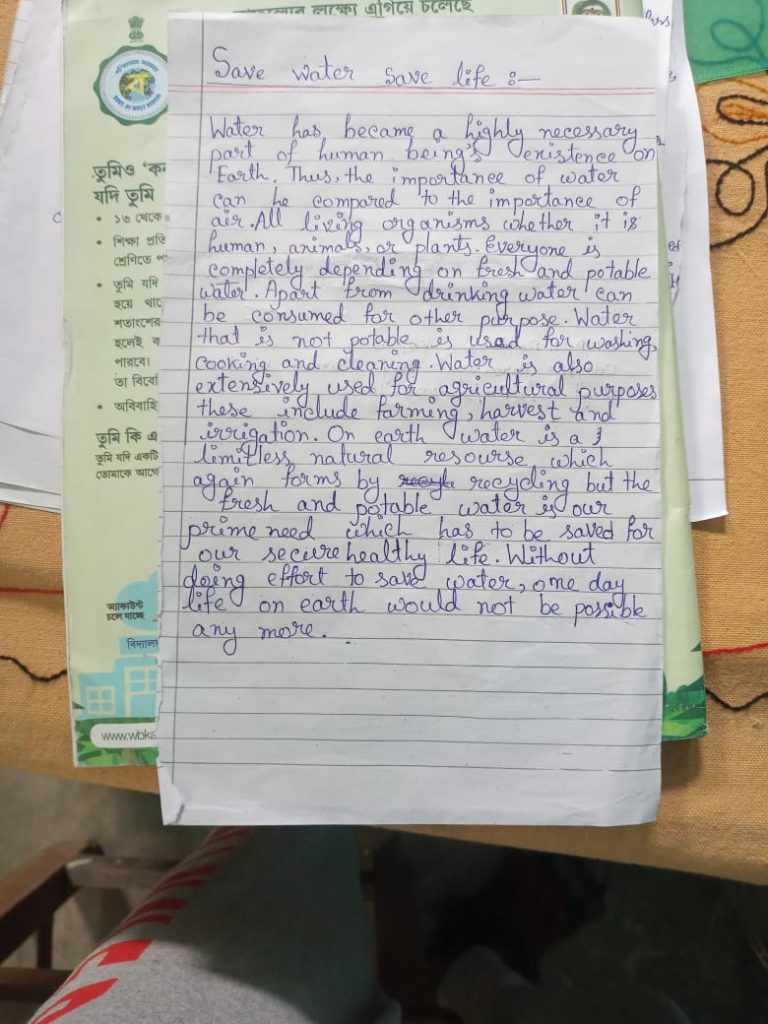 এগিয়ে চলেছে
Save water save life :—
Water has became a highly necessary
part of human being's existence on
Earth. Thus, the importance of water
can be compared to the importance of
air. All living organisms whether it is
human, animals, or plants. Everyone is
completely depending on fresh and potable
water. Apart from drinking water can
be consumed for other purpose. Water
that is not potable is used for washing,
cooking and cleaning. Water is also
extensively used for agricultural purposes
these include farming, harvest and
irrigation. On earth water is a
limitless natural resourse which
again forms by recycling but the
fresh and potable water is our
prime need which has to be saved for
our secure healthy life. Without
doing effort to save water, one day
life on earth would not be possible
any more.
GOVT. OF WEST BENGAL
তুমিও
যদি তুমি
• ১৩ থেকে
• শিক্ষা প্রতি
শ্রেণিতে
• তুমি যদি
হয়ে
শতাংশের
হলেই
পারবে।
তা
• অবিবাহি
তুমি কি এ
তুমি যদি একটি
তোমাকে আগে
অ্যাকাউন্ট
চলে যাচ্ছে
বিদ্যালয়
www.wbka